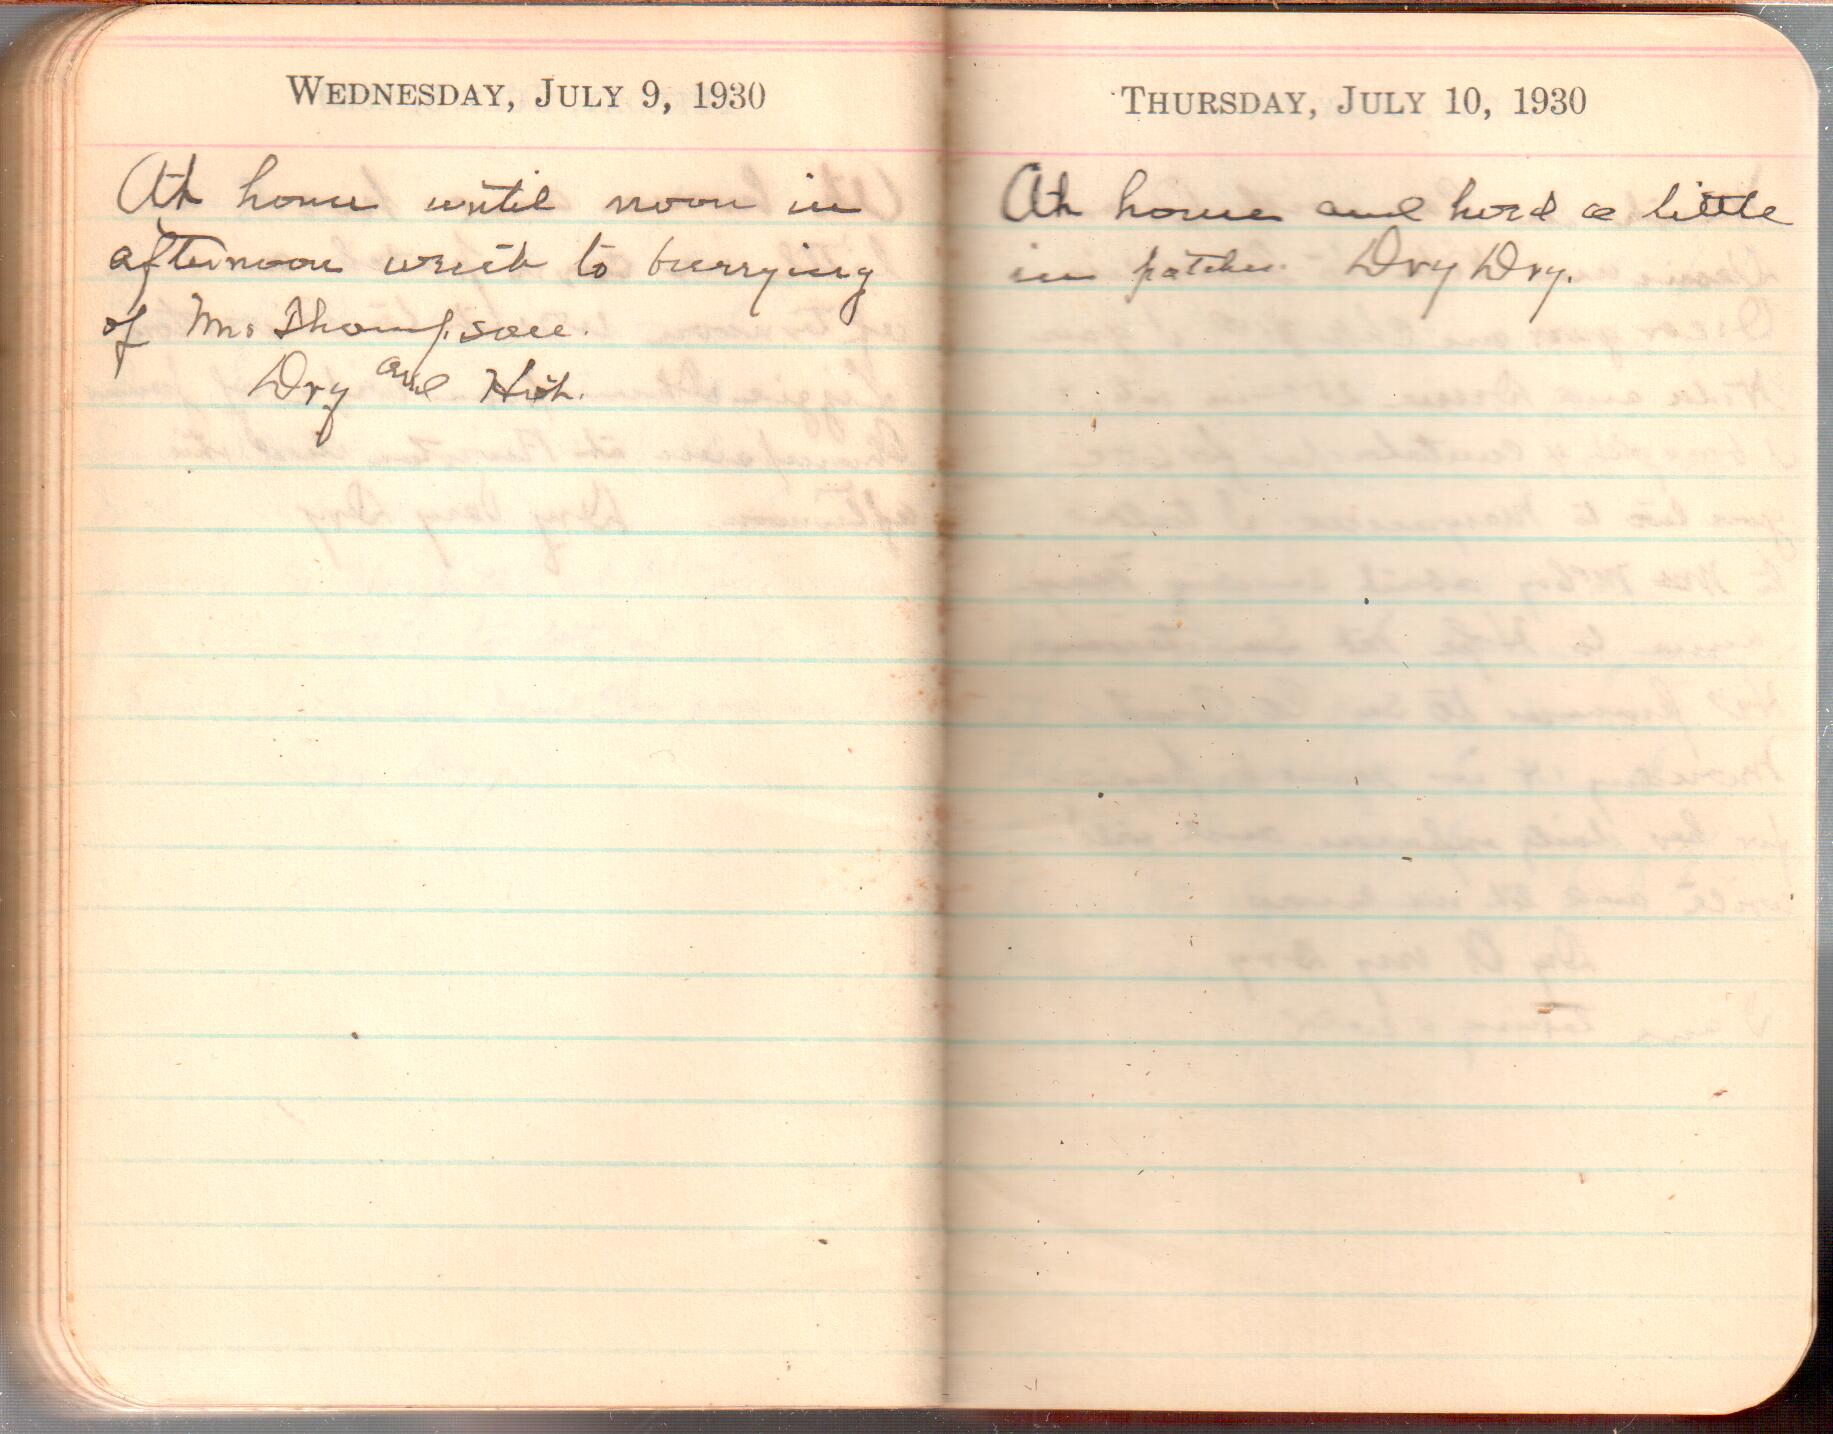 WEDNESDAY, JULY 9, 1930
At home until noon in
afternoon went to burrying
of Mrs Thompson.
Dry and Hot.
THURSDAY, JULY 10, 1930
At home and hoed a little
in patches. Dry Dry.